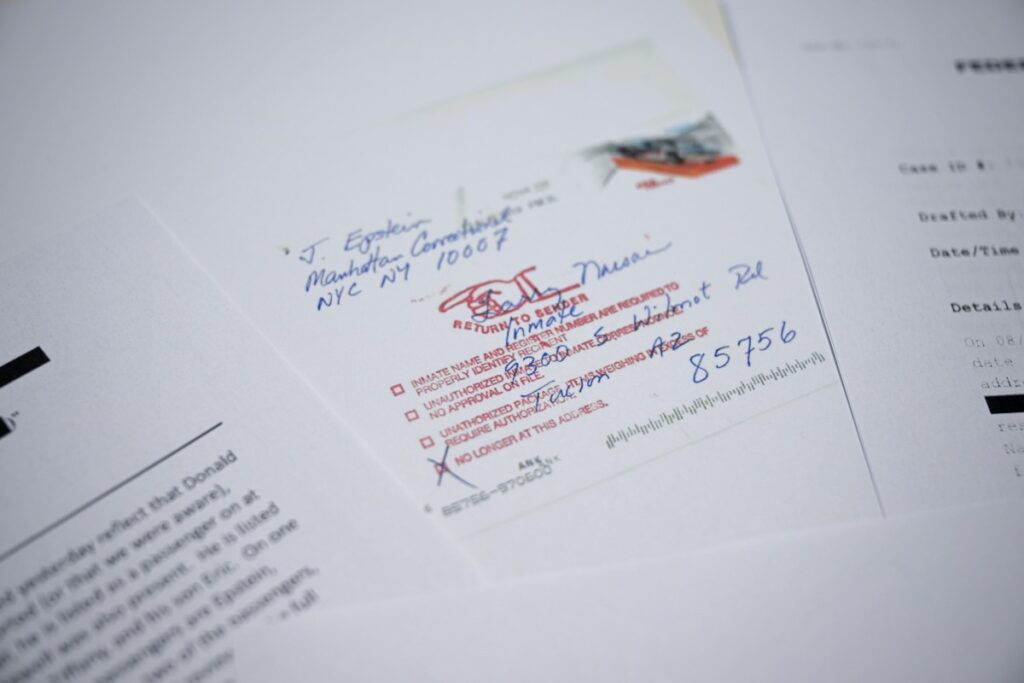 J. Epstein
Manhattan Correctional
NYC NY 10007
RETURN TO SENDER
Larry Nassar
Inmate
9300 S. Wilmot Rd
Tucson AZ
85756
INMATE NAME AND REGISTER NUMBER ARE REQUIRED TO
PROPERLY IDENTIFY RECIPIENT
UNAUTHORIZED INMATE TO INMATE CORRESPONDENCE
NO APPROVAL ON FILE.
UNATHORIZED PACKAGE, ITEMS WEIGHING IN EXCESS OF
REQUIRE AUTHORIZATION
NO LONGER AT THIS ADDRESS.
X
ANK
85756-970600
yesterday reflect that Donald
(or that we were aware),
he is listed as a passenger on at
was also present. He is listed
Tiffany, and his son Eric. On one
are Epstein,
of the passengers,
full
Case ID #:
Drafted By
Date/Time
Details
On 08/
date
addre